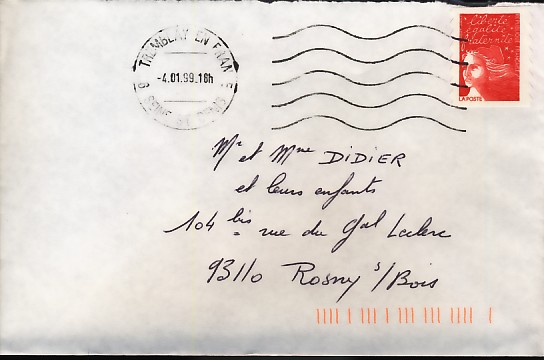 TREMBLAY EN FRANCE
-4.01.99_16h
SEINE ST DENIS
Liberté
égalité
fraternité
LA POSTE
Mr et Mme DIDIER
et leurs enfants
104 bis rue du Gal Leclerc
93110 Rosny s/Bois